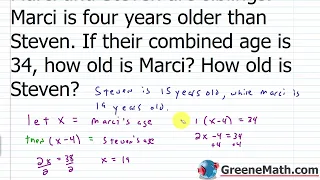 Marci and Steven are siblings.
Marci is four years older than
Steven. If their combined age is
34, how old is Marci? How old is
Steven?
Steven is 15 years old, while marci is
19 years old.
let x = marci's age
1 (x-4) = 34
then (x-4) = steven's age
2x -4 = 34
+4 +4
2x = 38
2 2
x = 19
GreeneMath.com